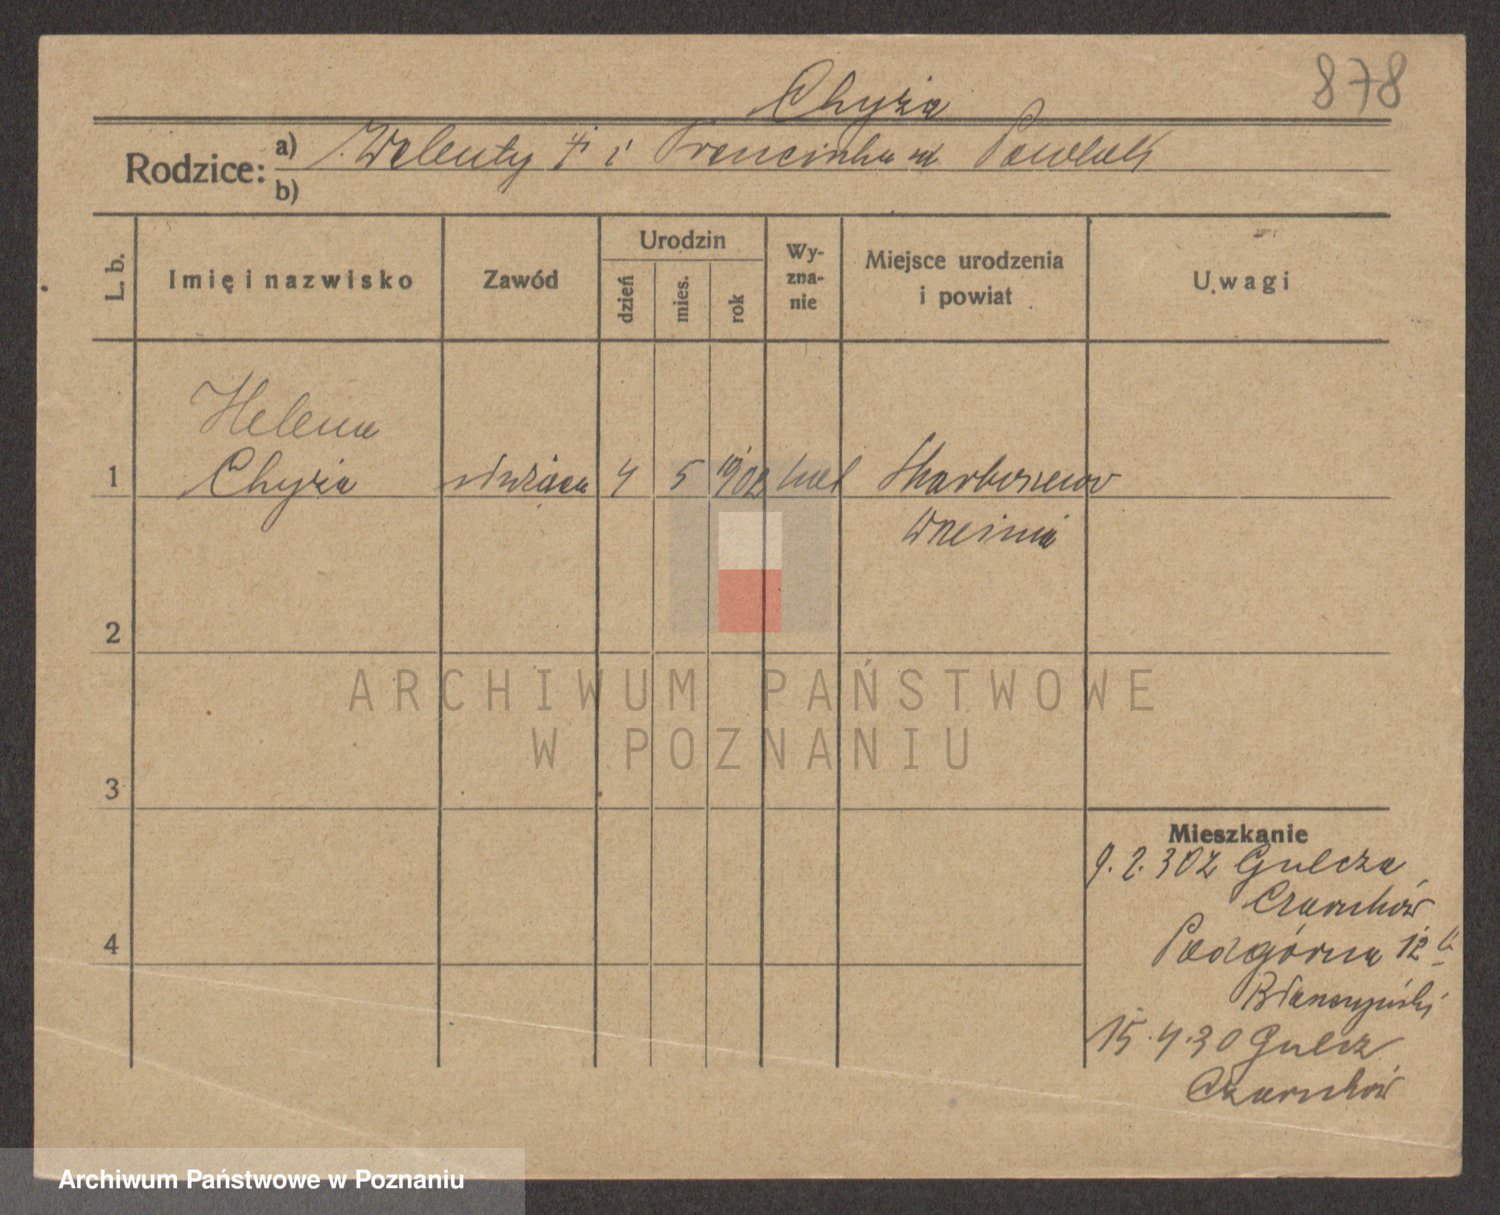 878
Chyża
Rodzice: a) Walenty † i Franciszka Pawlak
b)
L. b.
Imię i nazwisko
Zawód
Urodzin
dzień
mies.
rok
Wy-
zna-
nie
Miejsce urodzenia
i powiat
Uwagi
Helena
1 Chyża służąca 4 5 1902 kat Skarboszewo
Września
2
3
4
Mieszkanie
9.2.30 z Gulcza
Czarnków
Podgórna 12
15.4.30 Gulcz
Czarnków
ARCHIWUM PAŃSTWOWE
W POZNANIU
Archiwum Państwowe w Poznaniu